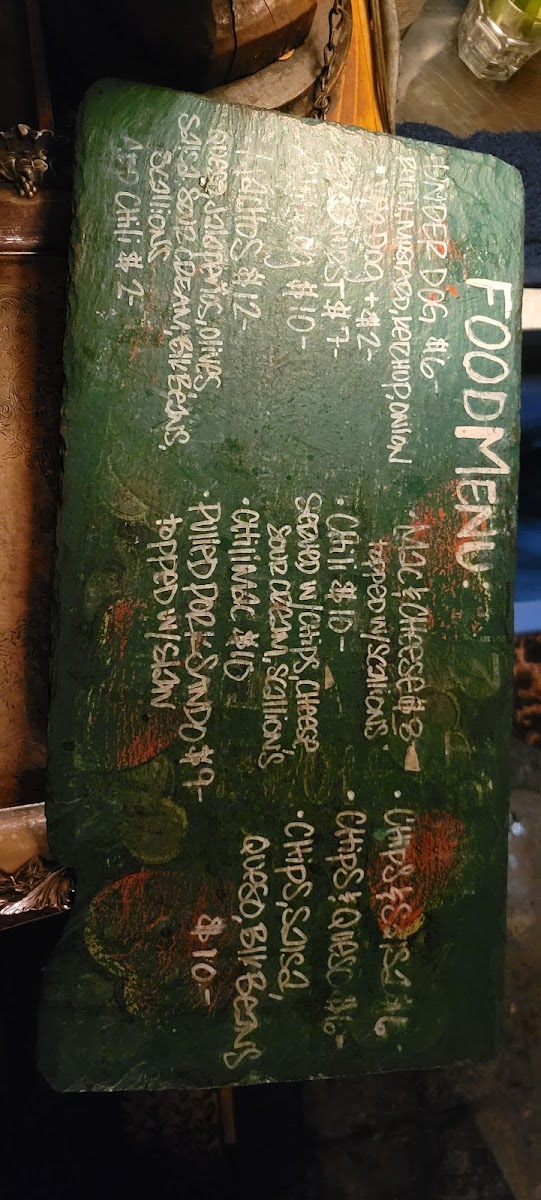 FOOD MENU:
UNDER DOG $6-
W/ MUSTARD, KETCHUP, ONION
DOG + $2-
$7-
$10-
NACHOS $12-
Queso, Jalapenos, olives,
Salsa, Sour CREAM, Blk Beans,
Scallions
ADD CHili $2-
· MAC & CHEESE $8-
topped w/ Scallions
· CHili $10-
Served w/ CHips, CHeese
Sour Cream, Scallions
· CHili MAC $10
· Pulled Pork SANDO $9-
topped w/ Slaw
· CHIPS & Salsa $6
· CHIPS & Queso $6-
· CHIPS, Salsa,
Queso, Blk Beans
$10-